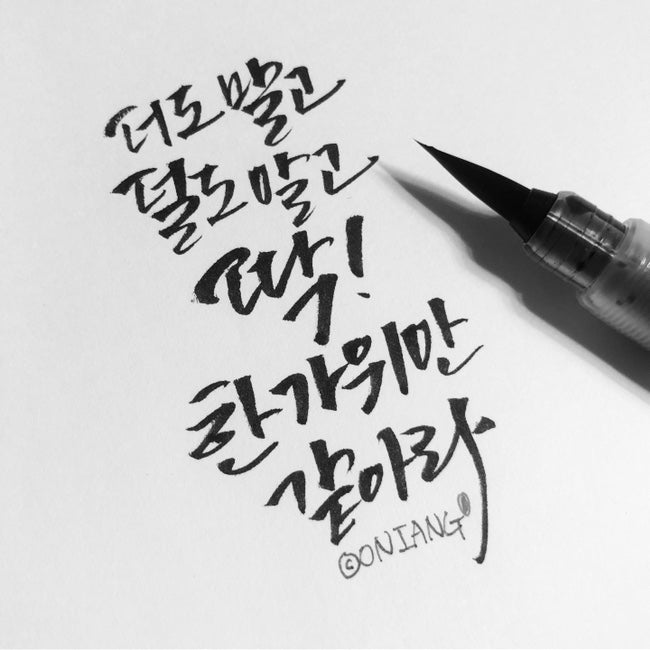 더도 말고
덜도 말고
딱!
한가위만
같아라
©ONIANG